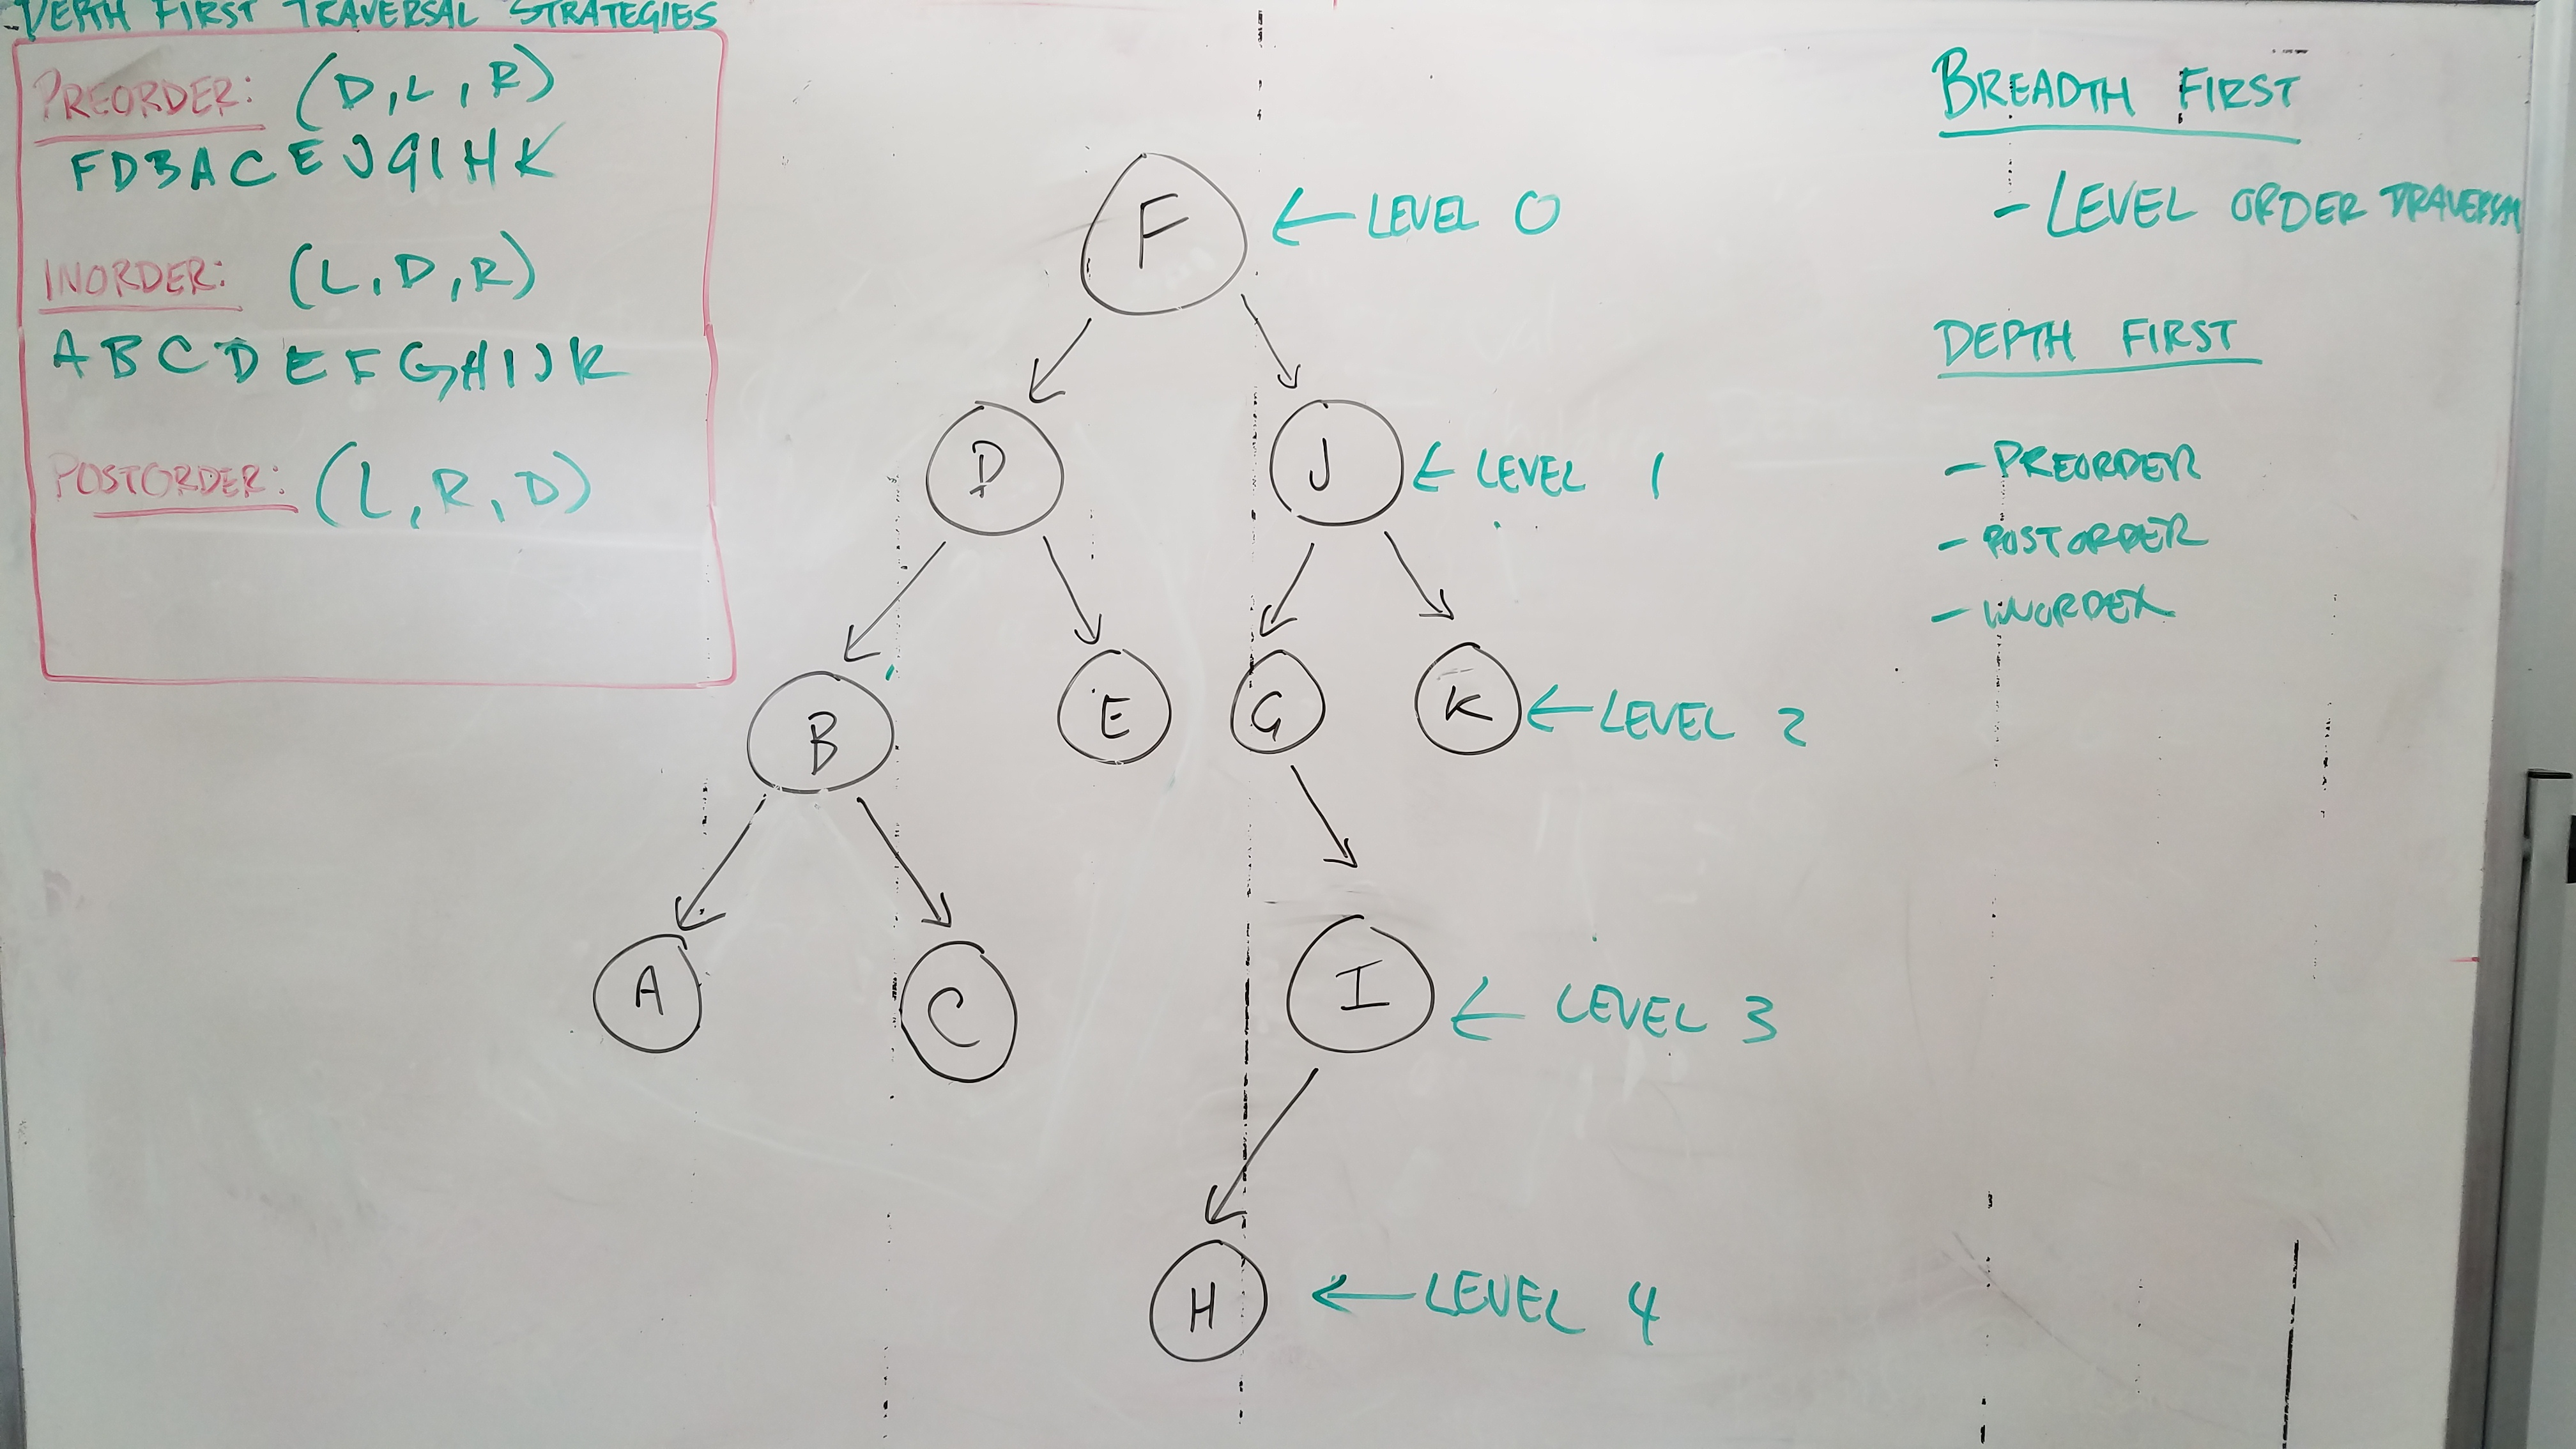 DEPTH FIRST TRAVERSAL STRATEGIES
PREORDER: (D, L, R)
F D B A C E J G I H K
INORDER: (L, D, R)
A B C D E F G H I J K
POSTORDER: (L, R, D)
F
← LEVEL 0
D
J
← LEVEL 1
B
E
G
K
← LEVEL 2
A
C
I
← LEVEL 3
H
← LEVEL 4
BREADTH FIRST
- LEVEL ORDER TRAVERSAL
DEPTH FIRST
- PREORDER
- POSTORDER
- INORDER